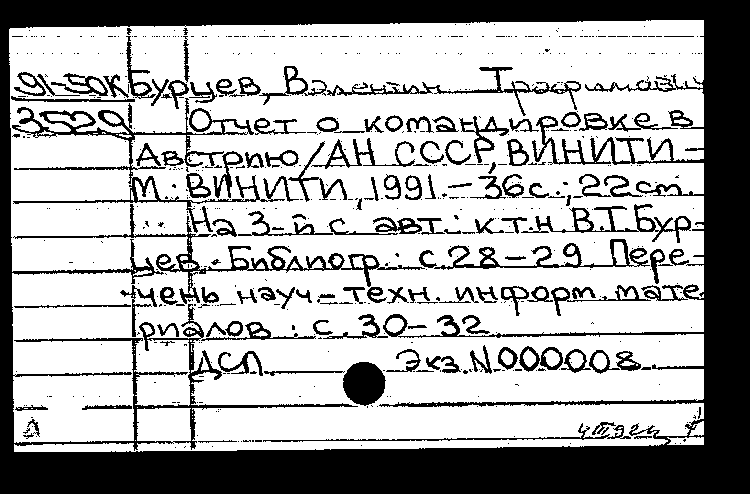 91-50К Бурцев, Валентин Трофимович
3529 Отчет о командировке в
Австрию / АН СССР, ВИНИТИ –
М.: ВИНИТИ, 1991. – 36с.; 22см.
На 3-й с. авт.: к.т.н. В.Т. Бур-
цев. Библиогр.: с.28–29. Пере-
чень науч-техн. информ. мате
риалов: с. 30–32
ДСП. Экз. N000008.
Д 4 III 92г.